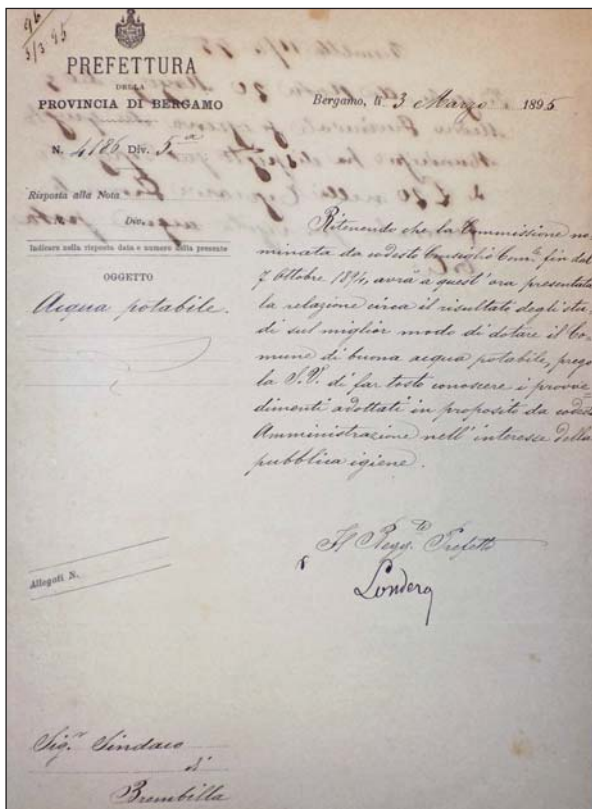 96
5/3 95
PREFETTURA
DELLA
PROVINCIA DI BERGAMO
Bergamo, li 3 Marzo 1895
N. 4186 Div. 5a
Risposta alla Nota
Div.
Indicare nella risposta data e numero della presente
OGGETTO
Acqua potabile.
Ritenendo che la Commissione no-
minata da codesto Consiglio Com.le fin dal
7 Ottobre 1894, avrà a quest'ora presentata
la relazione circa il risultati degli stu-
di sul miglior modo di dotare il Co-
mune di buona acqua potabile, prego
la S.V. di far tosto conoscere i provve-
dimenti adottati in proposito da codesta
Amministrazione nell'interesse della
pubblica igiene.
Il Regg.te Prefetto
Allegati N.
Sig.r Sindaco
di
Brembilla